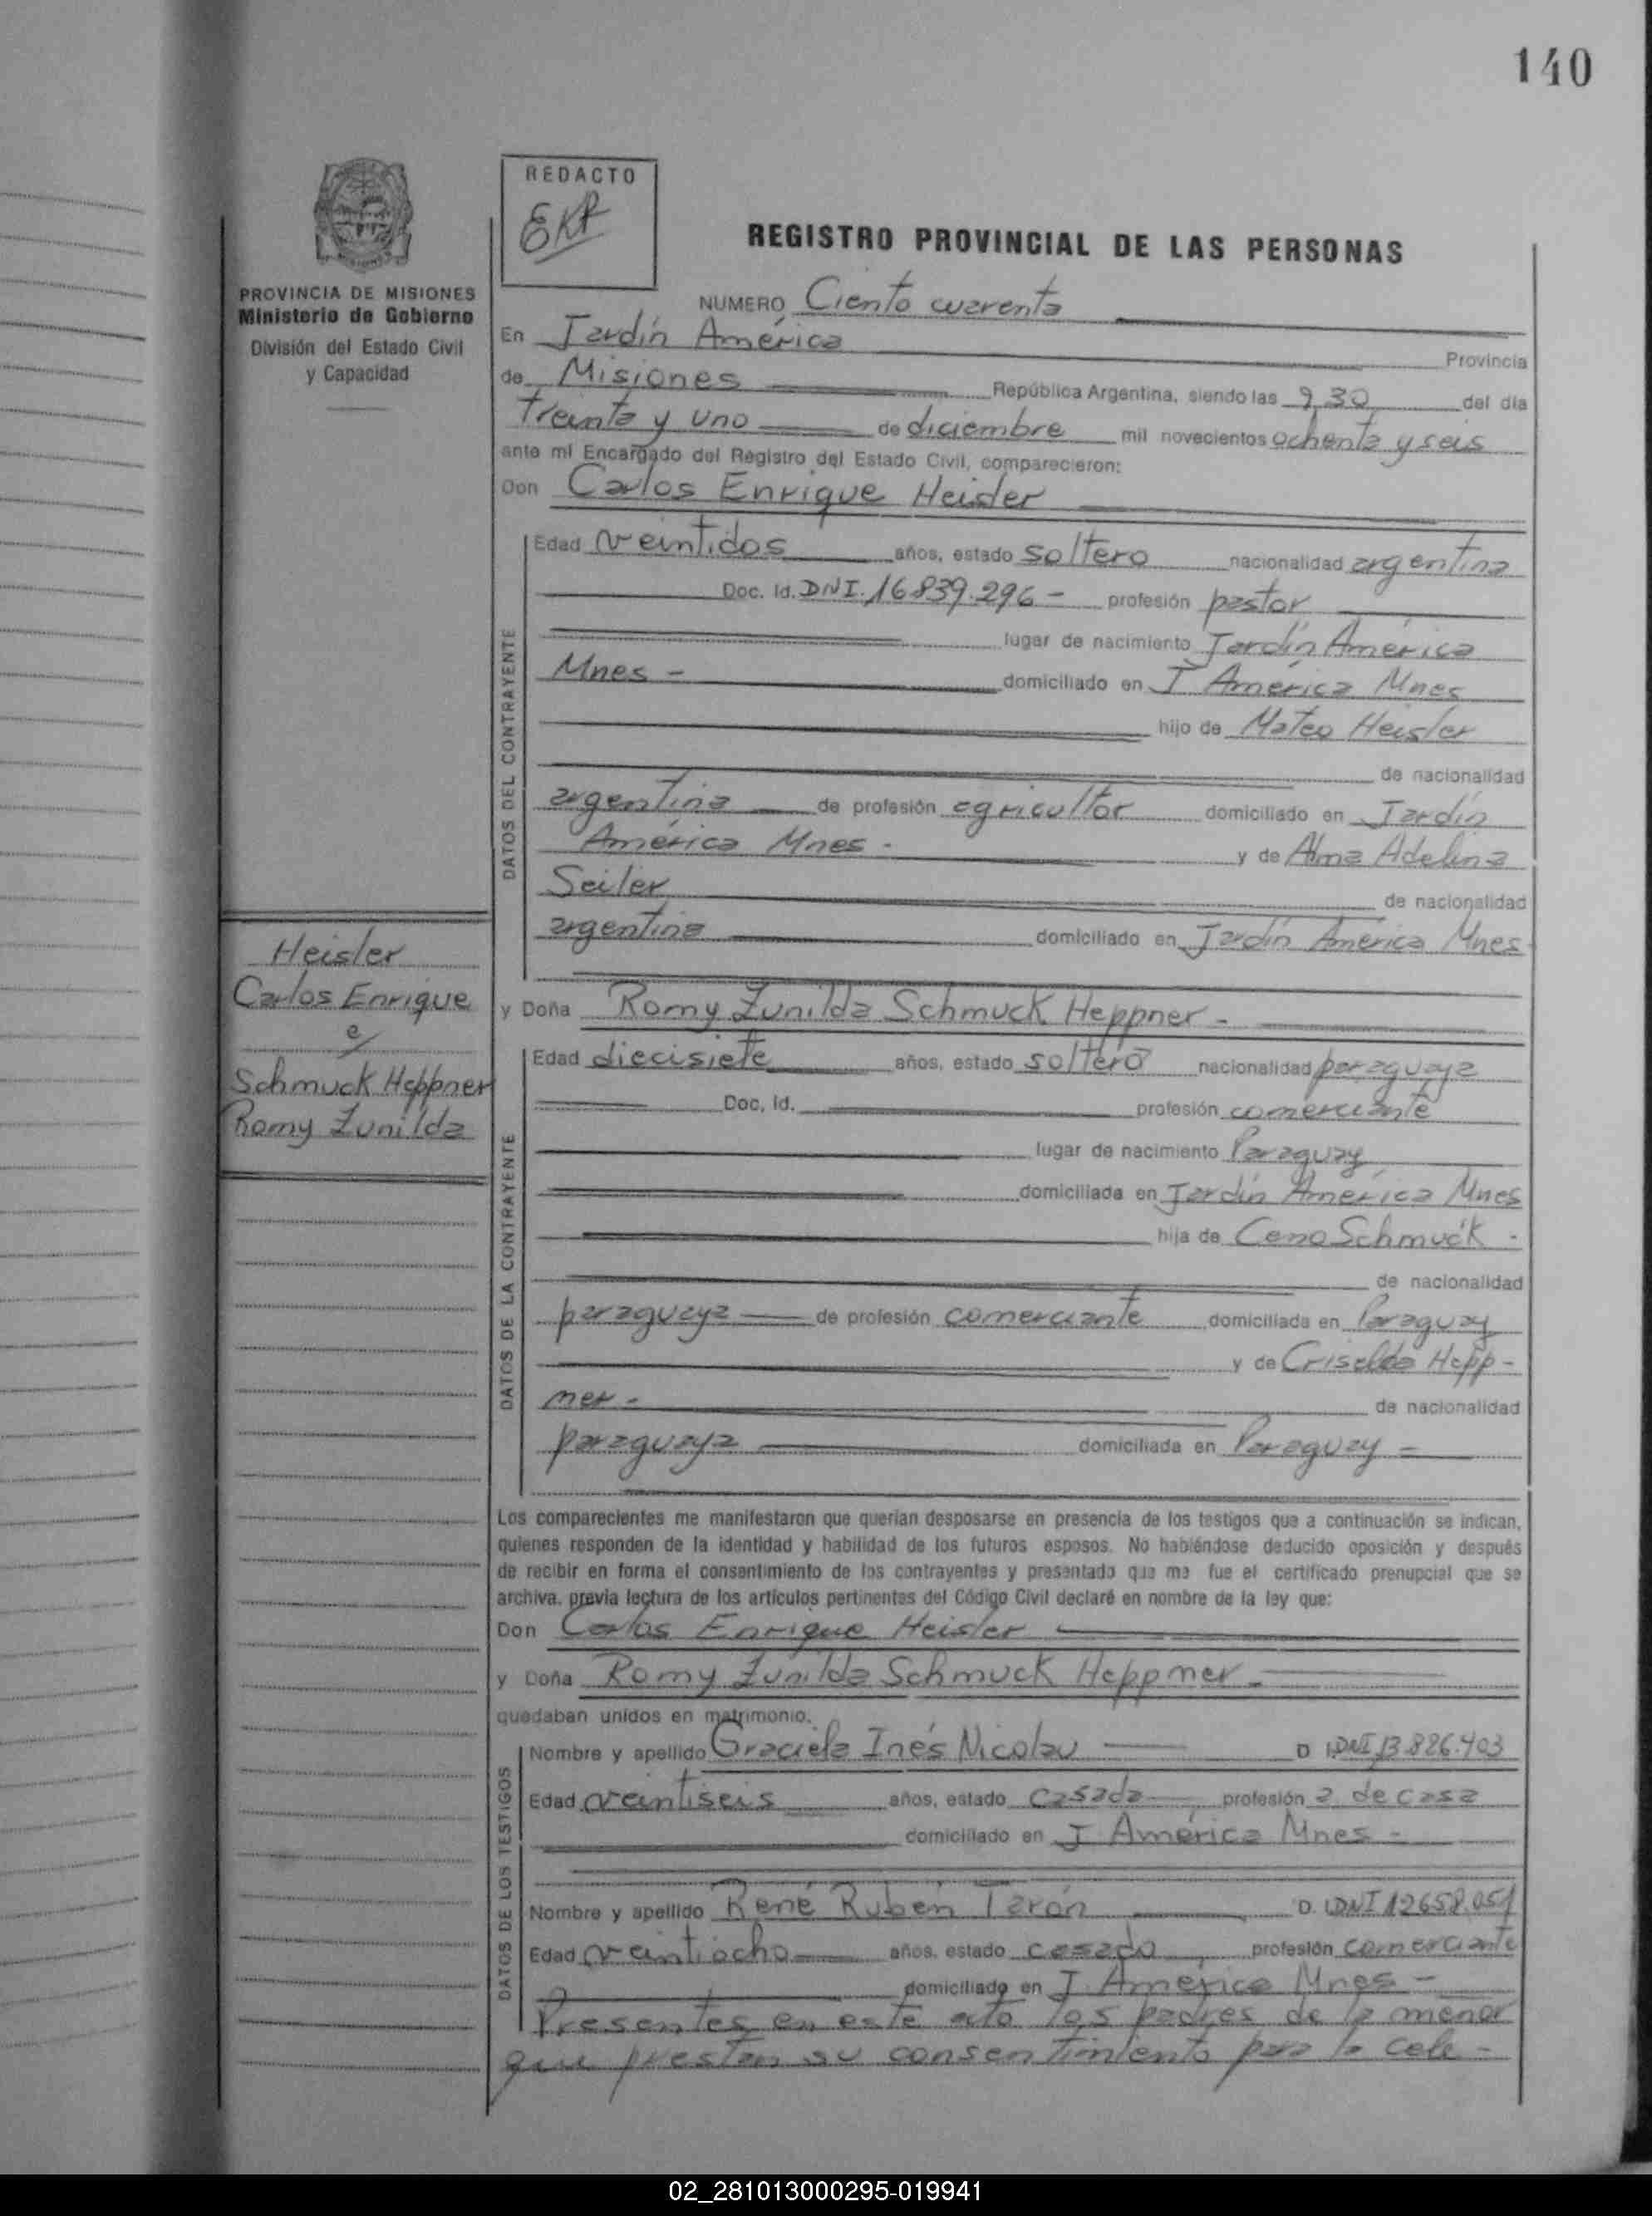 140
REDACTO
EKR
REGISTRO PROVINCIAL DE LAS PERSONAS
PROVINCIA DE MISIONES
Ministerio de Gobierno
División del Estado Civil
y Capacidad
NUMERO Ciento cuarenta
En Jardín América Provincia
de Misiones República Argentina, siendo las 9,30 del día
treinta y uno de diciembre mil novecientos ochenta y seis
ante mí Encargado del Registro del Estado Civil, comparecieron:
Don Carlos Enrique Heisler
DATOS DEL CONTRAYENTE
Edad veintidos años, estado soltero nacionalidad argentina
Doc. Id. DNI. 16.839.296 - profesión pastor
lugar de nacimiento Jardín América
Mnes - domiciliado en J América Mnes
hijo de Mateo Heisler
de nacionalidad
argentina de profesión agricultor domiciliado en Jardín
América Mnes - y de Alma Adelina
Seiler de nacionalidad
argentina domiciliado en Jardín América Mnes
Heisler
Carlos Enrique
e/
Schmuck Heppner
Romy Zunilda
y Doña Romy Zunilda Schmuck Heppner -
DATOS DE LA CONTRAYENTE
Edad diecisiete años, estado soltera nacionalidad paraguaya
Doc, Id. profesión comerciante
lugar de nacimiento Paraguay
domiciliada en Jardín América Mnes
hija de Ceno Schmuck -
de nacionalidad
paraguaya de profesión comerciante domiciliada en Paraguay
y de Criselda Hepp-
ner - de nacionalidad
paraguaya domiciliada en Paraguay -
Los comparecientes me manifestaron que querían desposarse en presencia de los testigos que a continuación se indican,
quienes responden de la identidad y habilidad de los futuros esposos. No habiéndose deducido oposición y después
de recibir en forma el consentimiento de los contrayentes y presentado que me fue el certificado prenupcial que se
archiva, previa lectura de los artículos pertinentes del Código Civil declaré en nombre de la ley que:
Don Carlos Enrique Heisler
y Doña Romy Zunilda Schmuck Heppner -
quedaban unidos en matrimonio.
DATOS DE LOS TESTIGOS
Nombre y apellido Graciela Inés Nicolau D I.DNI 13.826.403
Edad veintiseis años, estado casada profesión a. de casa
domiciliado en J América Mnes -
Nombre y apellido René Rubén Tarón D. I.DNI 12658.051
Edad veintiocho años, estado casado profesión comerciante
domiciliado en J. América Mnes -
Presentes en este acto los padres de la menor
que prestan su consentimiento para la cele-
02_281013000295-019941